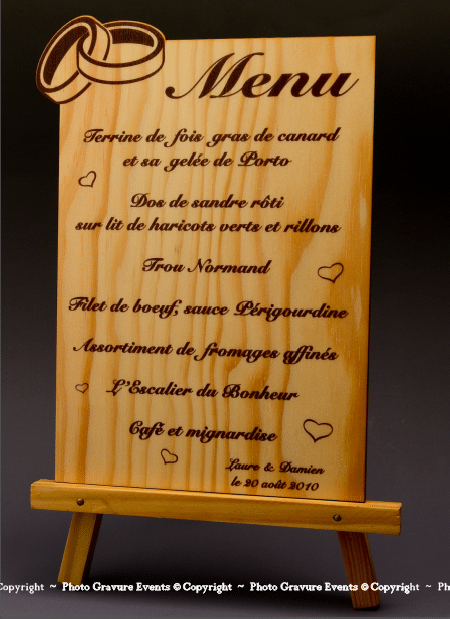 Menu
Terrine de fois gras de canard
et sa gelée de Porto
Dos de sandre rôti
sur lit de haricots verts et rillons
Trou Normand
Filet de boeuf, sauce Périgourdine
Assortiment de fromages affinés
L'Escalier du Bonheur
Café et mignardise
Laure & Damien
le 20 août 2010
Copyright ~ Photo Gravure Events © Copyright ~ Photo Gravure Events © Copyright ~ Photo